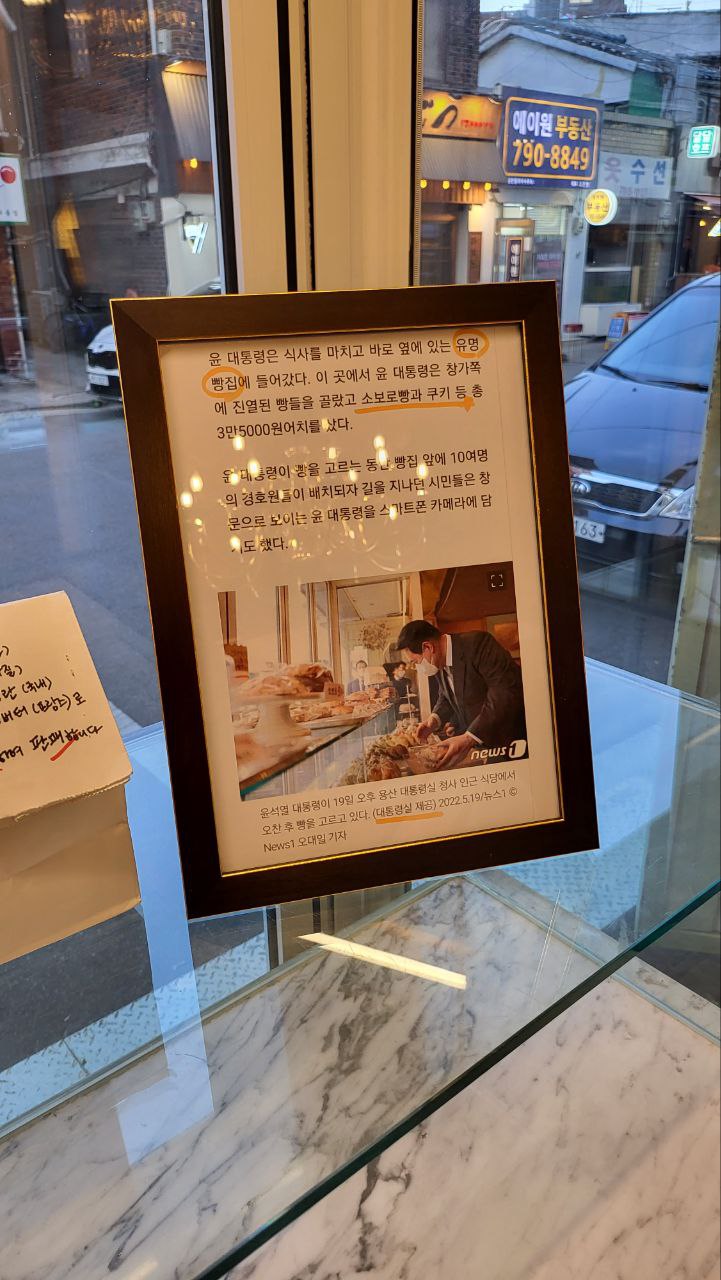 에이원 부동산
790-8849
옷수선
부동산
윤 대통령은 식사를 마치고 바로 옆에 있는 유명
빵집에 들어갔다. 이 곳에서 윤 대통령은 창가쪽
에 진열된 빵들을 골랐고 소보로빵과 쿠키 등 총
3만5000원어치를 샀다.
윤 대통령이 빵을 고르는 동안 빵집 앞에 10여명
의 경호원들이 배치되자 길을 지나던 시민들은 창
문으로 보이는 윤 대통령을 스마트폰 카메라에 담
기도 했다.
news1
윤석열 대통령이 19일 오후 용산 대통령실 청사 인근 식당에서
오찬 후 빵을 고르고 있다. (대통령실 제공) 2022.5.19/뉴스1 ©
News1 오대일 기자
란 (국내)
버터 (프랑스)로
하여 판매합니다
163